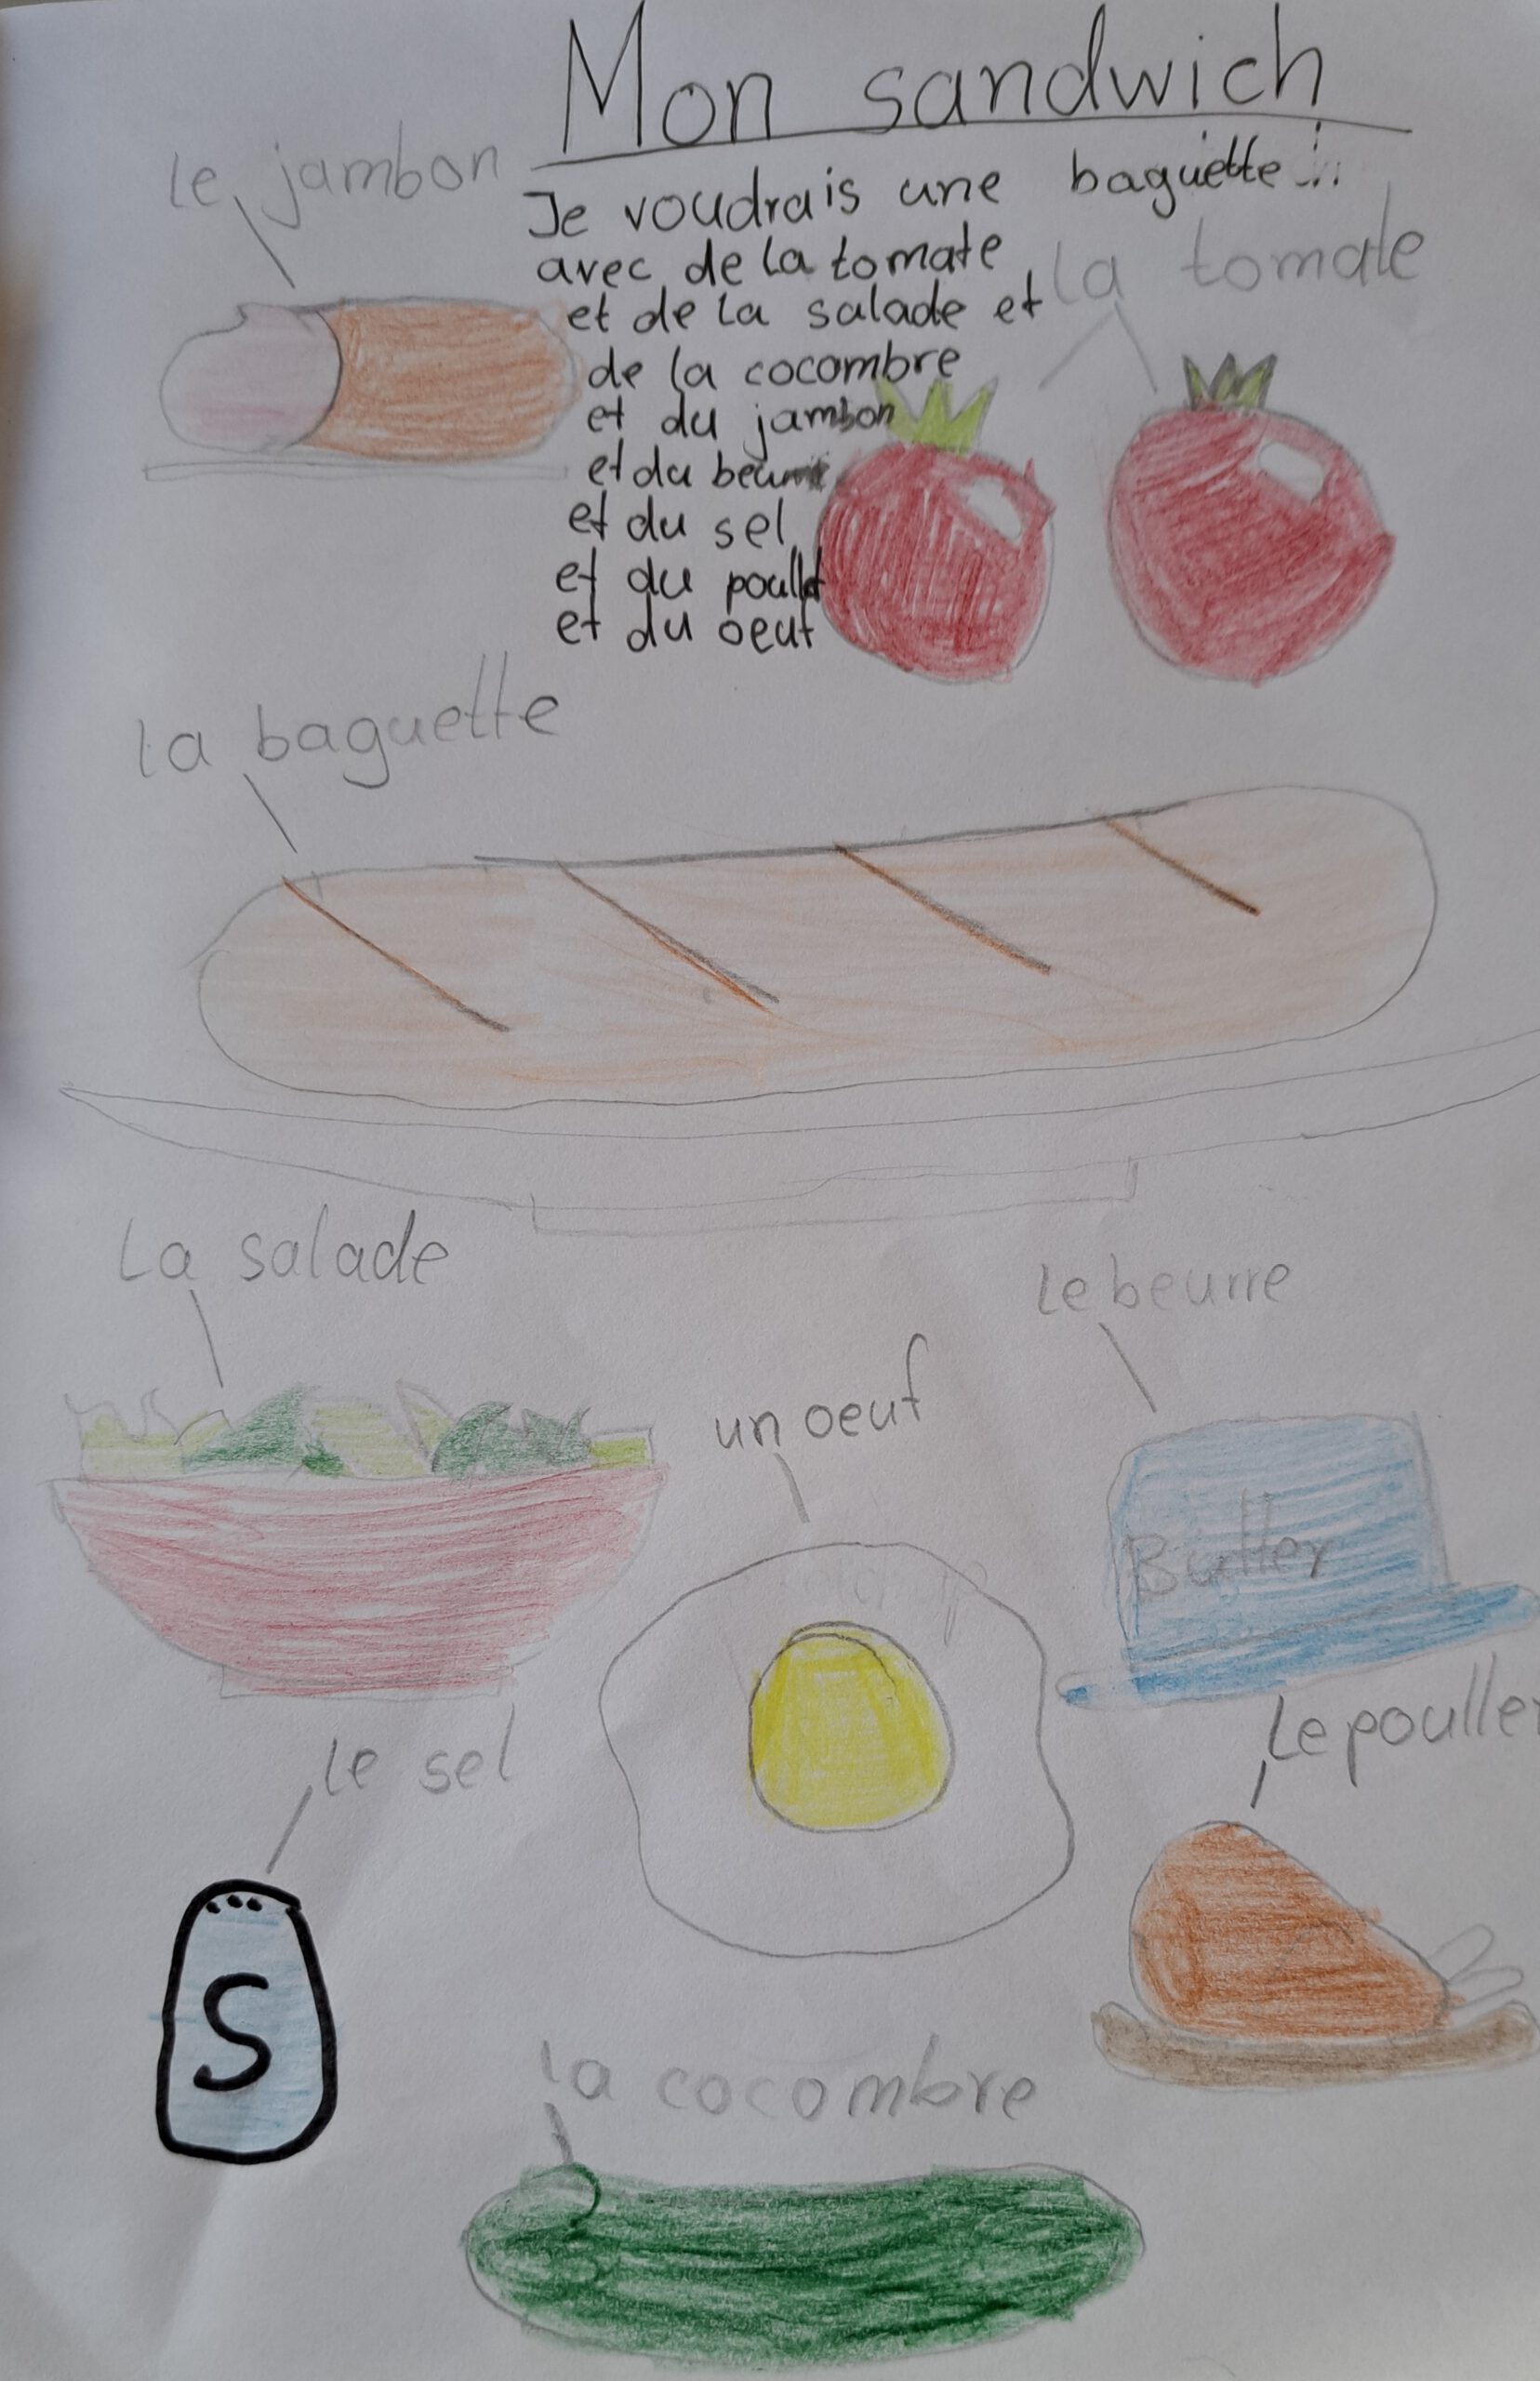 Mon sandwich
le jambon
Je voudrais une baguette...
avec de la tomate
et de la salade et
de la cocombre
et du jambon
et du
et du sel
et du poullet
et du oeuf
la tomate
la baguette
La salade
le beurre
un oeuf
Butter
le sel
Le poullet
S
la cocombre